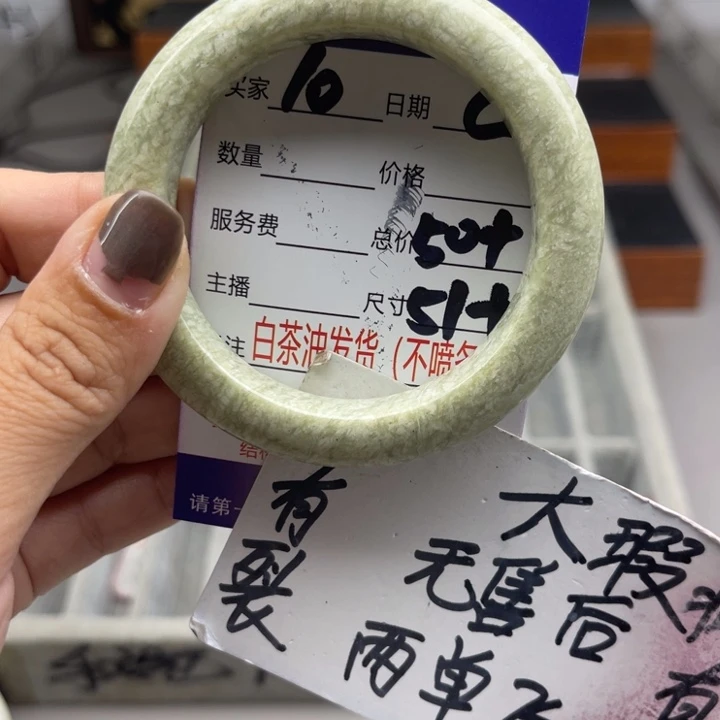 买家 10 日期
数量 价格
服务费 总价 50+
主播 尺寸 51+
注 白茶油发货（不喷
请第一
有裂
大瑕
无售后
两单
有